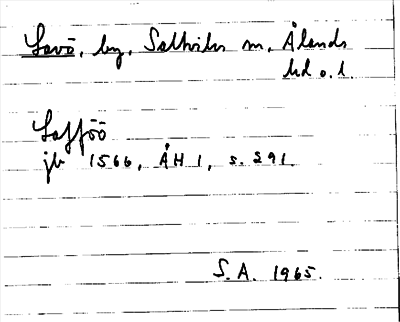 Lavö, by, Saltviks sn, Ålands
hd o. l.
Lafföö
jb 1566, ÅH 1, s. 291.
S.A. 1965.